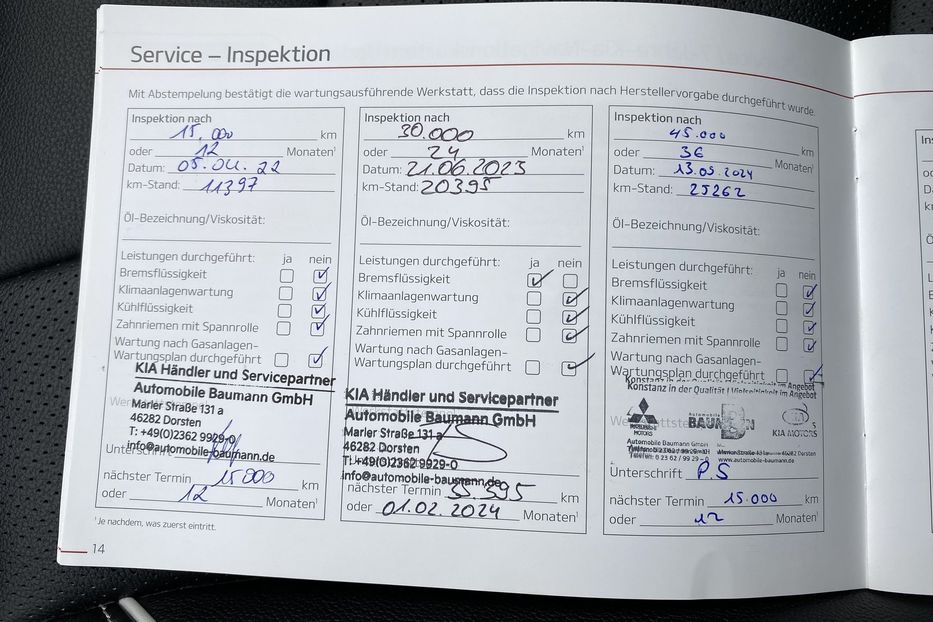 Service – Inspektion
Mit Abstempelung bestätigt die wartungsausführende Werkstatt, dass die Inspektion nach Herstellervorgabe durchgeführt wurde.
Inspektion nach
15.000 km
oder 12 Monaten¹
Datum: 05.04.22
km-Stand: 11397
Öl-Bezeichnung/Viskosität:
Leistungen durchgeführt: ja nein
Bremsflüssigkeit
Klimaanlagenwartung
Kühlflüssigkeit
Zahnriemen mit Spannrolle
Wartung nach Gasanlagen-
Wartungsplan durchgeführt
KIA Händler und Servicepartner
Automobile Baumann GmbH
Marler Straße 131 a
46282 Dorsten
T: +49(0)2362 9929-0
info@automobile-baumann.de
Unterschrift
nächster Termin 15000 km
oder 12 Monaten¹
¹ Je nachdem, was zuerst eintritt.
14
Inspektion nach
30.000 km
oder 24 Monaten¹
Datum: 21.06.2023
km-Stand: 20395
Öl-Bezeichnung/Viskosität:
Leistungen durchgeführt: ja nein
Bremsflüssigkeit
Klimaanlagenwartung
Kühlflüssigkeit
Zahnriemen mit Spannrolle
Wartung nach Gasanlagen-
Wartungsplan durchgeführt
KIA Händler und Servicepartner
Automobile Baumann GmbH
Marler Straße 131 a
46282 Dorsten
T: +49(0)2362 9929-0
info@automobile-baumann.de
nächster Termin 35.395 km
oder 01.02.2024 Monaten¹
Inspektion nach
45.000 km
oder 36 Monaten¹
Datum: 13.05.2024
km-Stand: 25262
Öl-Bezeichnung/Viskosität:
Leistungen durchgeführt: ja nein
Bremsflüssigkeit
Klimaanlagenwartung
Kühlflüssigkeit
Zahnriemen mit Spannrolle
Wartung nach Gasanlagen-
Wartungsplan durchgeführt
Konstanz in der Qualität | Vielseitigkeit im Angebot
MITSUBISHI MOTORS
Automobile BAUMANN
KIA MOTORS
Automobile Baumann GmbH
www.automobile-baumann.de
Unterschrift P.S
nächster Termin 15.000 km
oder 12 Monaten¹